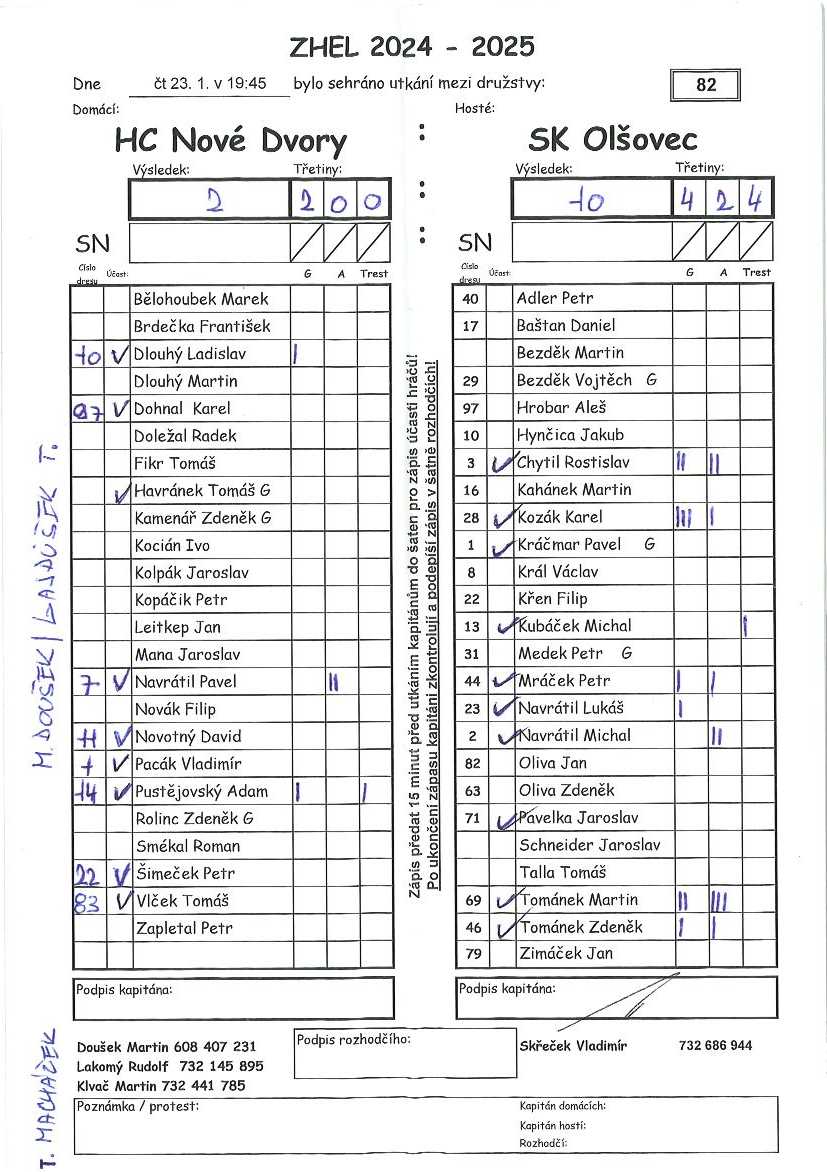 ZHEL 2024 - 2025
Dne čt 23. 1. v 19:45 bylo sehráno utkání mezi družstvy: 82
Domácí: Hosté:
HC Nové Dvory : SK Olšovec
Výsledek: Třetiny: Výsledek: Třetiny:
2 2 0 0 : 10 4 2 4
SN : SN
Číslo dresu Účast: G A Trest Číslo dresu Účast: G A Trest
Bělohoubek Marek 40 Adler Petr
Brdečka František 17 Baštan Daniel
10 ✓ Dlouhý Ladislav | Bezděk Martin
Dlouhý Martin 29 Bezděk Vojtěch G
97 ✓ Dohnal Karel 97 Hrobar Aleš
Doležal Radek 10 Hynčica Jakub
Fikr Tomáš 3 ✓ Chytil Rostislav || ||
✓ Havránek Tomáš G 16 Kahánek Martin
Kamenář Zdeněk G 28 ✓ Kozák Karel ||| |
Kocián Ivo 1 ✓ Kráčmar Pavel G
Kolpák Jaroslav 8 Král Václav
Kopáčik Petr 22 Křen Filip
Leitkep Jan 13 ✓ Kubáček Michal |
Mana Jaroslav 31 Medek Petr G
7 ✓ Navrátil Pavel || 44 ✓ Mráček Petr | |
Novák Filip 23 ✓ Navrátil Lukáš |
11 ✓ Novotný David 2 ✓ Navrátil Michal ||
1 ✓ Pacák Vladimír 82 Oliva Jan
14 ✓ Pustějovský Adam | | 63 Oliva Zdeněk
Rolinc Zdeněk G 71 ✓ Pavelka Jaroslav
Smékal Roman Schneider Jaroslav
22 ✓ Šimeček Petr Talla Tomáš
83 ✓ Vlček Tomáš 69 ✓ Tománek Martin || |||
Zapletal Petr 46 ✓ Tománek Zdeněk | |
79 Zimáček Jan
Zápis předat 15 minut před utkáním kapitánům do šaten pro zápis účasti hráčů!
Po ukončení zápasu kapitáni zkontrolují a podepíší zápis v šatně rozhodčích!
M. DOUŠEK / LAJDÚŠEK T.
T. MACHÁČEK
Podpis kapitána: Podpis kapitána:
Doušek Martin 608 407 231 Podpis rozhodčího: Skřeček Vladimír 732 686 944
Lakomý Rudolf 732 145 895
Klvač Martin 732 441 785
Poznámka / protest: Kapitán domácích:
Kapitán hostí:
Rozhodčí: